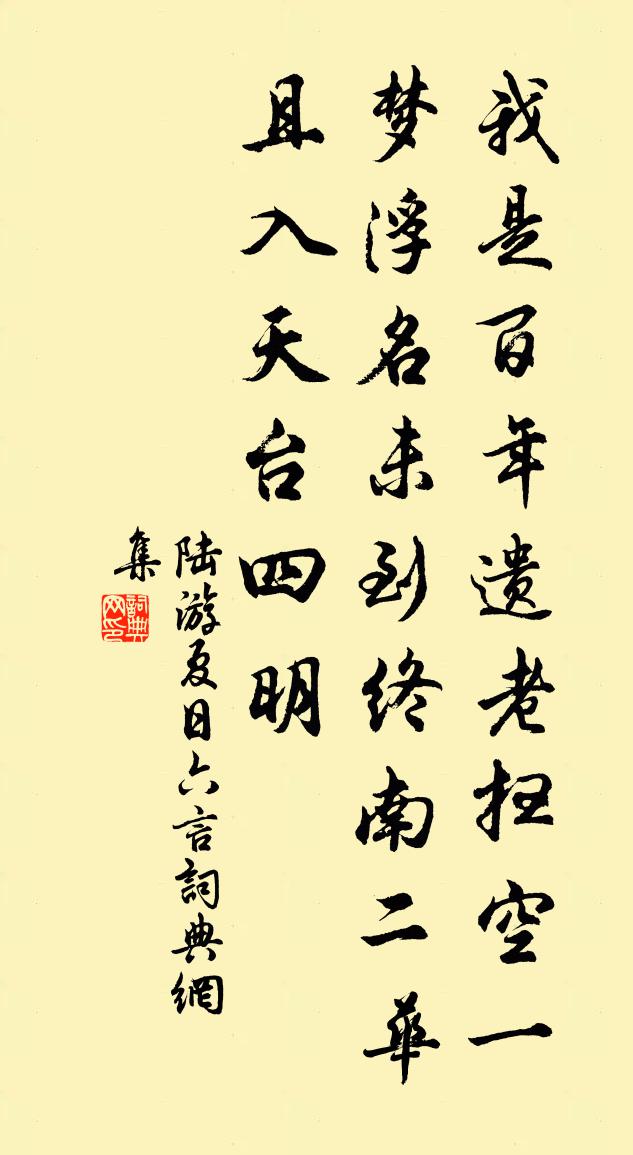 我是百年遗老抂空一
梦浮名未到终南二華
且入天台四明
陆游夏日六言詞典網
集
詞典
网印